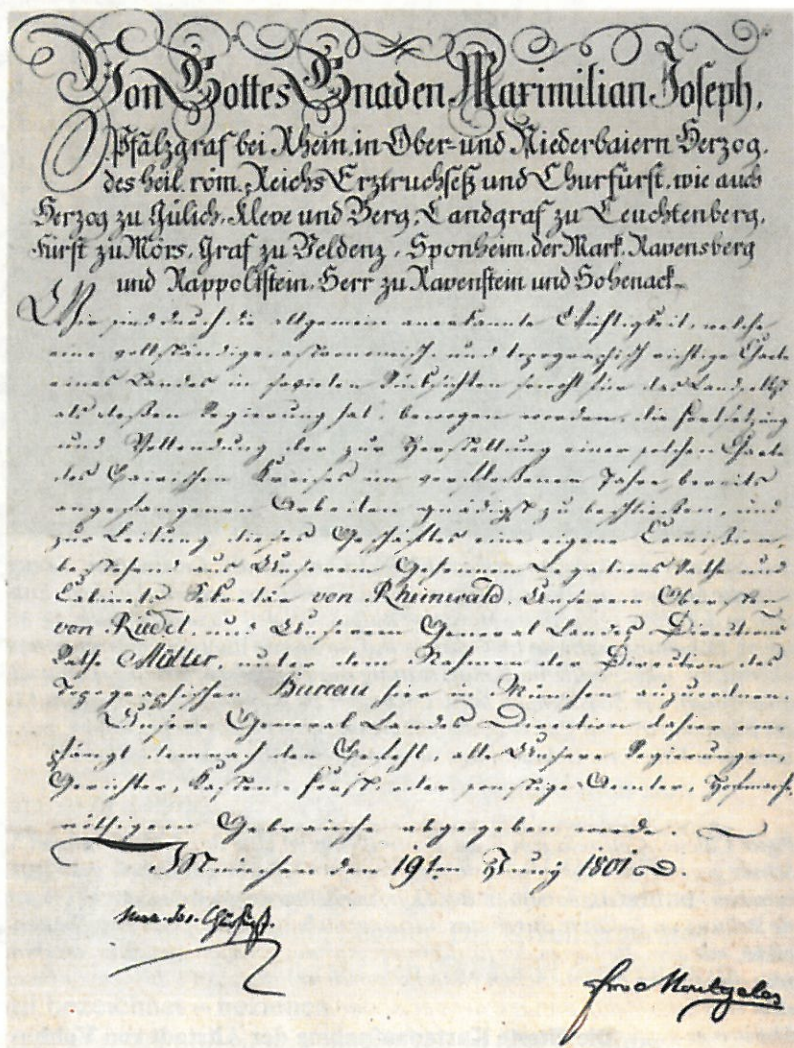 Von Gottes Gnaden Maximilian Joseph,
Pfalzgraf bei Rhein, in Ober- und Niederbaiern Herzog,
des heil. röm. Reichs Erztruchseß und Churfürst, wie auch
Herzog zu Gülich, Kleve und Berg, Landgraf zu Leuchtenberg,
Fürst zu Mörs, Graf zu Veldenz, Sponheim, der Mark, Ravensberg
und Rappoltstein, Herr zu Ravenstein und Hohenack.
Wir sind durch die allgemein anerkannte Wichtigkeit, welche
eine vollständige, astronomisch und topographisch richtige Charte
eines Landes in sovielen Hinsichten sowohl für das Land selbst
als deßen Regierung hat, bewogen worden, die Fortsetzung
und Vollendung der zur Herstellung einer solchen Charte
des Bairischen Kreises im verfloßenen Jahre bereits
angefangenen Arbeiten gnädigst zu beschließen, und
zur Leitung dieses Geschäftes eine eigene Commißion,
bestehend aus Unserem Geheimen Legations Rathe und
Cabinets Sekretär von Rheinwald, Unserem Obersten
von Riedel, und Unserem General Landes Directions
Rathe Miller, unter dem Nahmen der Direction des
Topographischen Bureau hier in München anzuordnen.
Unsere General Landes Direction daher em-
pfängt demnach den Befehl, alle Unsere Regierungen,
Gerichter, Kasten- Forst- oder sonstige Aemter, Hofmark-
nöthigem Gebrauche abgegeben werde.
München den 19ten Juny 1801.
Max. Jos. Churfürst.
Montgelas